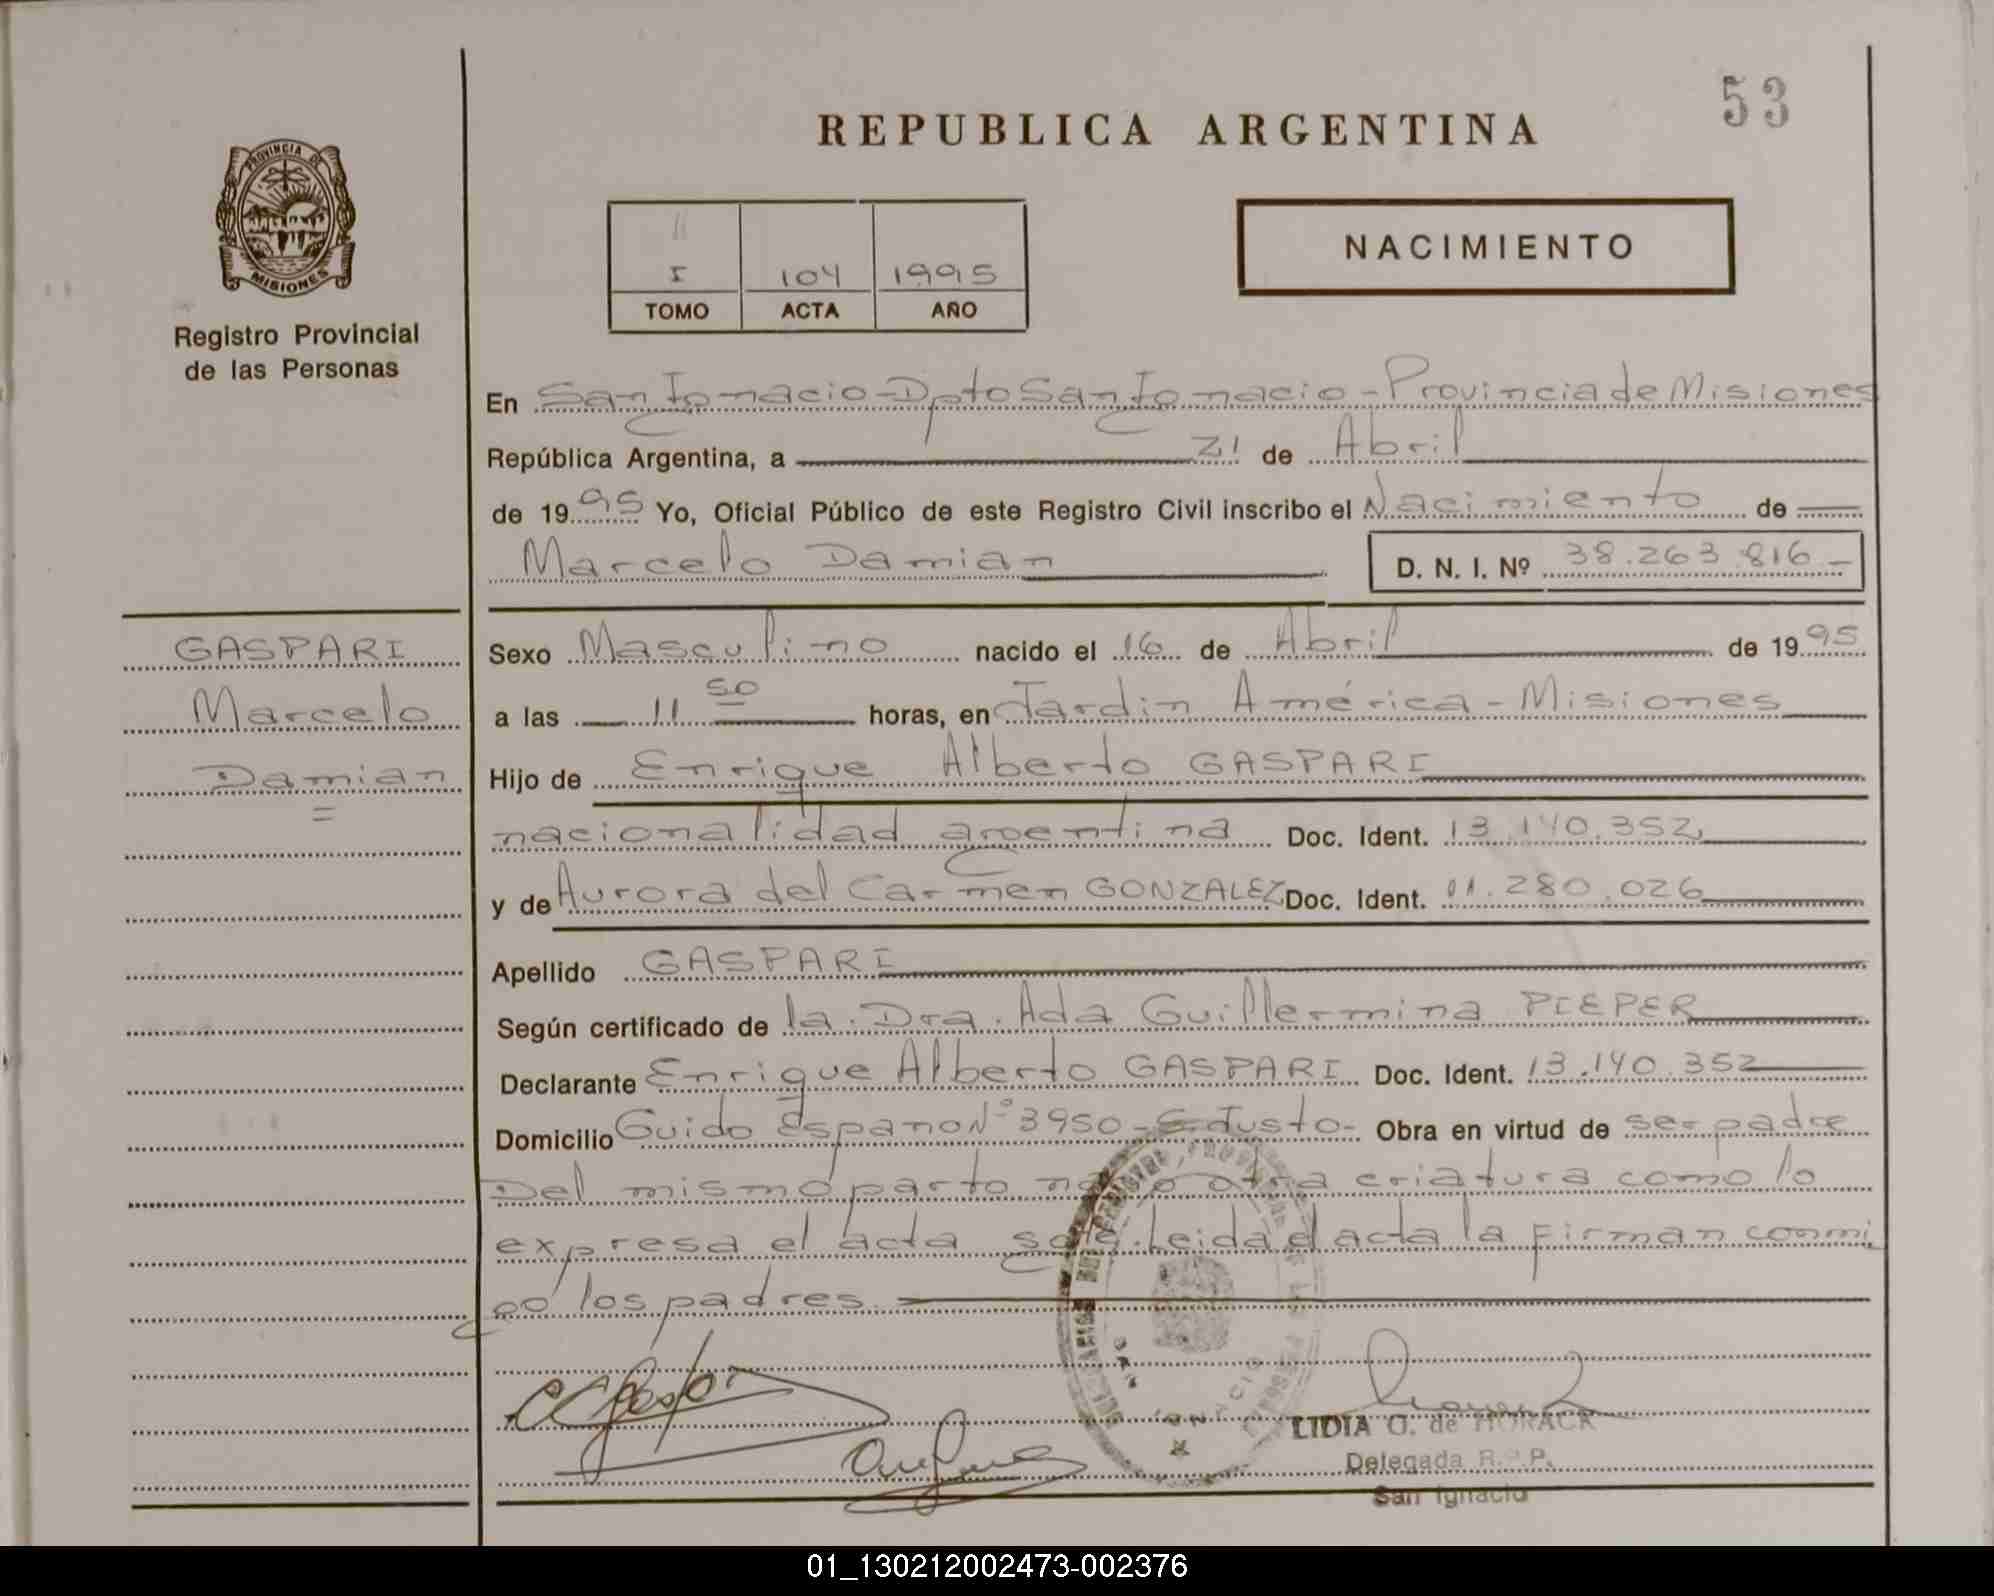 53
REPUBLICA ARGENTINA
PROVINCIA DE
MISIONES
Registro Provincial
de las Personas
NACIMIENTO
I 104 1995
TOMO ACTA AÑO
En San Ignacio - Dpto San Ignacio - Provincia de Misiones
República Argentina, a 21 de Abril
de 1995 Yo, Oficial Público de este Registro Civil inscribo el Nacimiento de
Marcelo Damian D. N. I. Nº 38.263.816 -
GASPARI
Marcelo
Damian
Sexo Masculino nacido el 16 de Abril de 1995
a las 11 50 horas, en Jardin América - Misiones
Hijo de Enrique Alberto GASPARI
nacionalidad argentina Doc. Ident. 13.140.352
y de Aurora del Carmen GONZALEZ Doc. Ident. 280.026
Apellido GASPARI
Según certificado de la Dra. Ada Guillermina PIEPER
Declarante Enrique Alberto GASPARI Doc. Ident. 13.140.352
Domicilio Guido Espano Nº 3950 - Justo - Obra en virtud de ser padre
Del mismo parto nacio otra criatura como lo
expresa el acta Leida el acta la firman conmi
go los padres.
LIDIA O. de HORACK
Delegada R.P.P.
San Ignacio
01_130212002473-002376